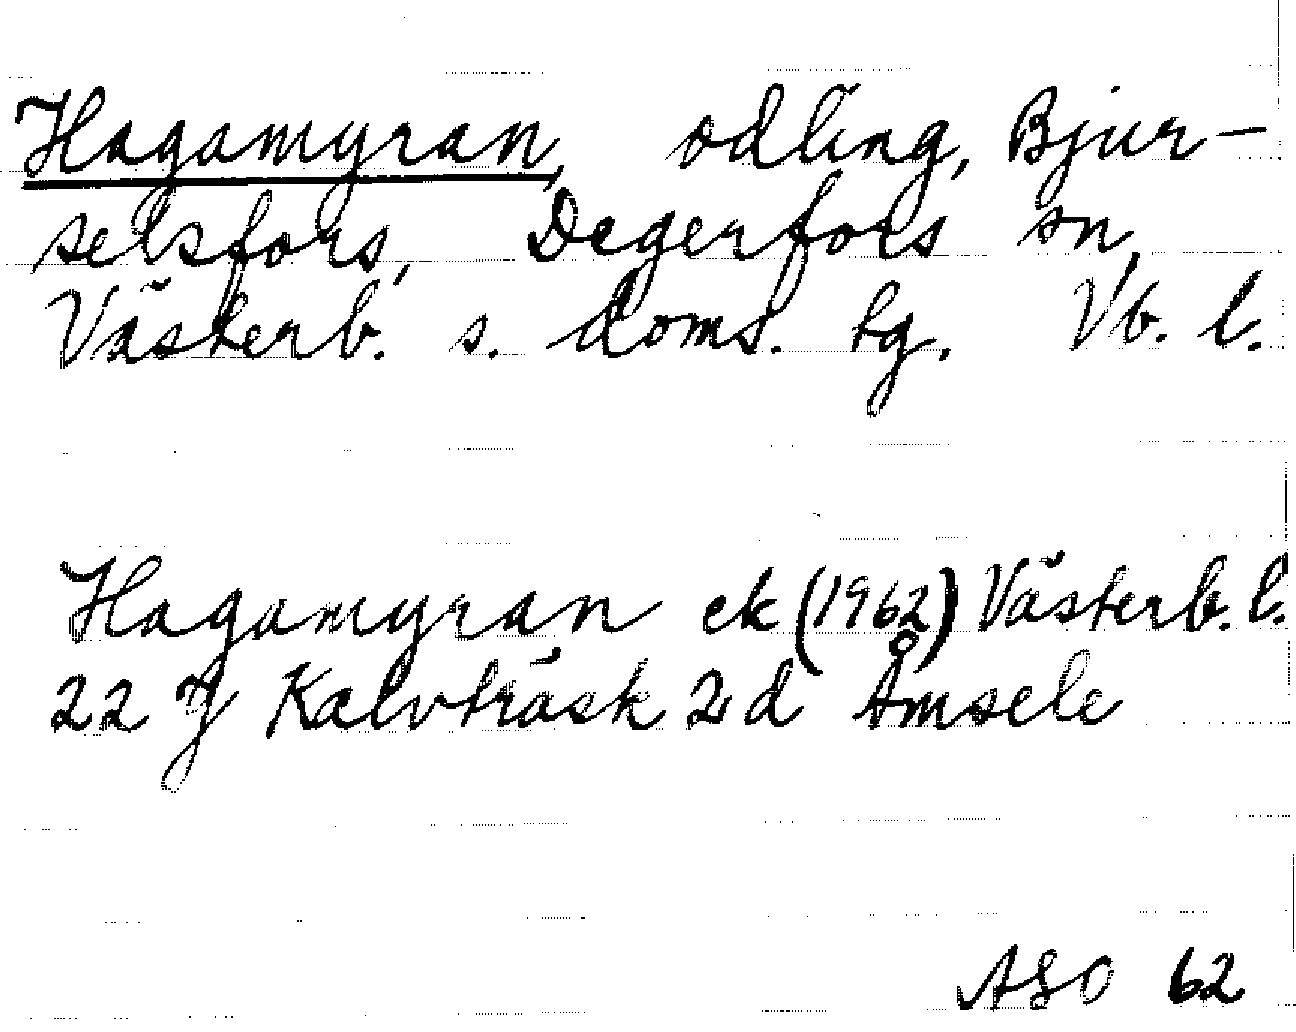 Hagamyran, odling, Bjur-
selsfors, Degerfors sn,
Västerb. s. doms. tg. Vb. l.
Hagamyran ek (1962) Västerb. l.
22 J Kalvträsk 2 d Åmsele
ASO 62